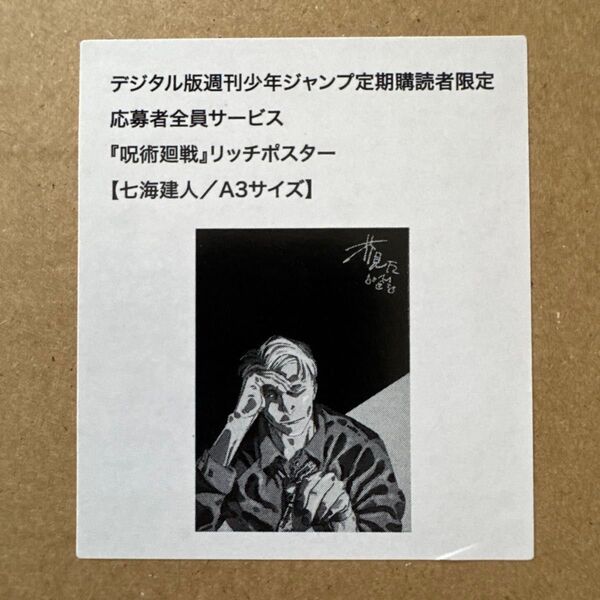 デジタル版週刊少年ジャンプ定期購読者限定
応募者全員サービス
『呪術廻戦』リッチポスター
【七海建人／A3サイズ】